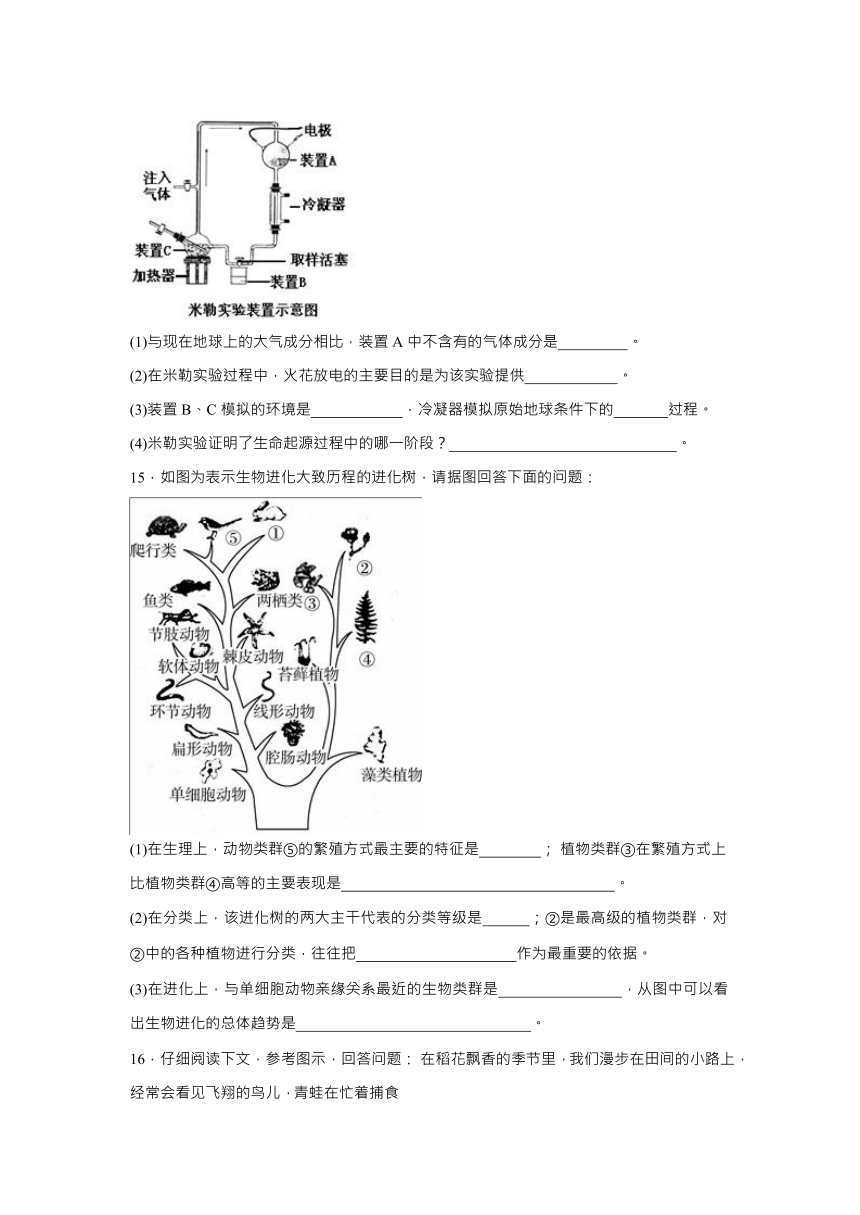 电极
装置A
注入
气体
冷凝器
装置C
取样活塞
加热器
装置B
米勒实验装置示意图
(1)与现在地球上的大气成分相比，装置 A 中不含有的气体成分是_________。
(2)在米勒实验过程中，火花放电的主要目的是为该实验提供____________。
(3)装置 B、C 模拟的环境是____________，冷凝器模拟原始地球条件下的_______过程。
(4)米勒实验证明了生命起源过程中的哪一阶段？______________________________。
15．如图为表示生物进化大致历程的进化树，请据图回答下面的问题：
爬行类
⑤
①
②
鱼类
两栖类
③
节肢动物
软体动物
棘皮动物
苔藓植物
④
环节动物
线形动物
扁形动物
腔肠动物
藻类植物
单细胞动物
(1)在生理上，动物类群⑤的繁殖方式最主要的特征是________； 植物类群③在繁殖方式上
比植物类群④高等的主要表现是____________________________________。
(2)在分类上，该进化树的两大主干代表的分类等级是______；②是最高级的植物类群，对
②中的各种植物进行分类，往往把_____________________作为最重要的依据。
(3)在进化上，与单细胞动物亲缘关系最近的生物类群是________________，从图中可以看
出生物进化的总体趋势是_______________________________。
16．仔细阅读下文，参考图示，回答问题： 在稻花飘香的季节里，我们漫步在田间的小路上，
经常会看见飞翔的鸟儿，青蛙在忙着捕食